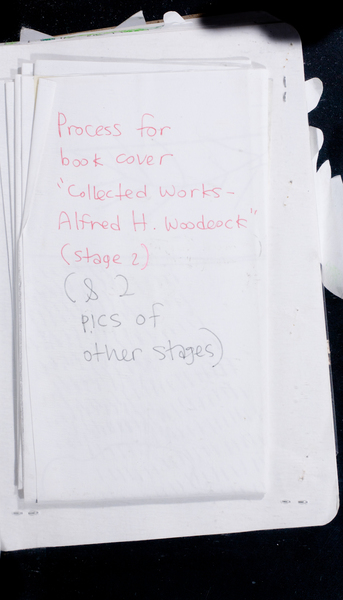 Process for
book cover
"Collected Works -
Alfred H. Woodcock"
(stage 2)
(& 2
pics of
other stages)